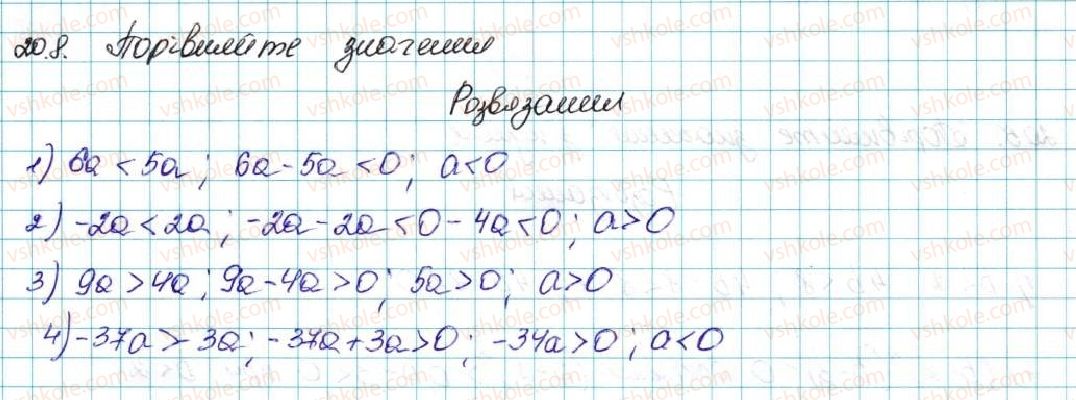 20.8. Порівняйте значення
Розвязання
1) 6a < 5a; 6a - 5a < 0; a < 0
2) -2a < 2a; -2a - 2a < 0 - 4a < 0; a > 0
3) 9a > 4a; 9a - 4a > 0; 5a > 0; a > 0
4) -37a > -3a; -37a + 3a > 0; -34a > 0; a < 0